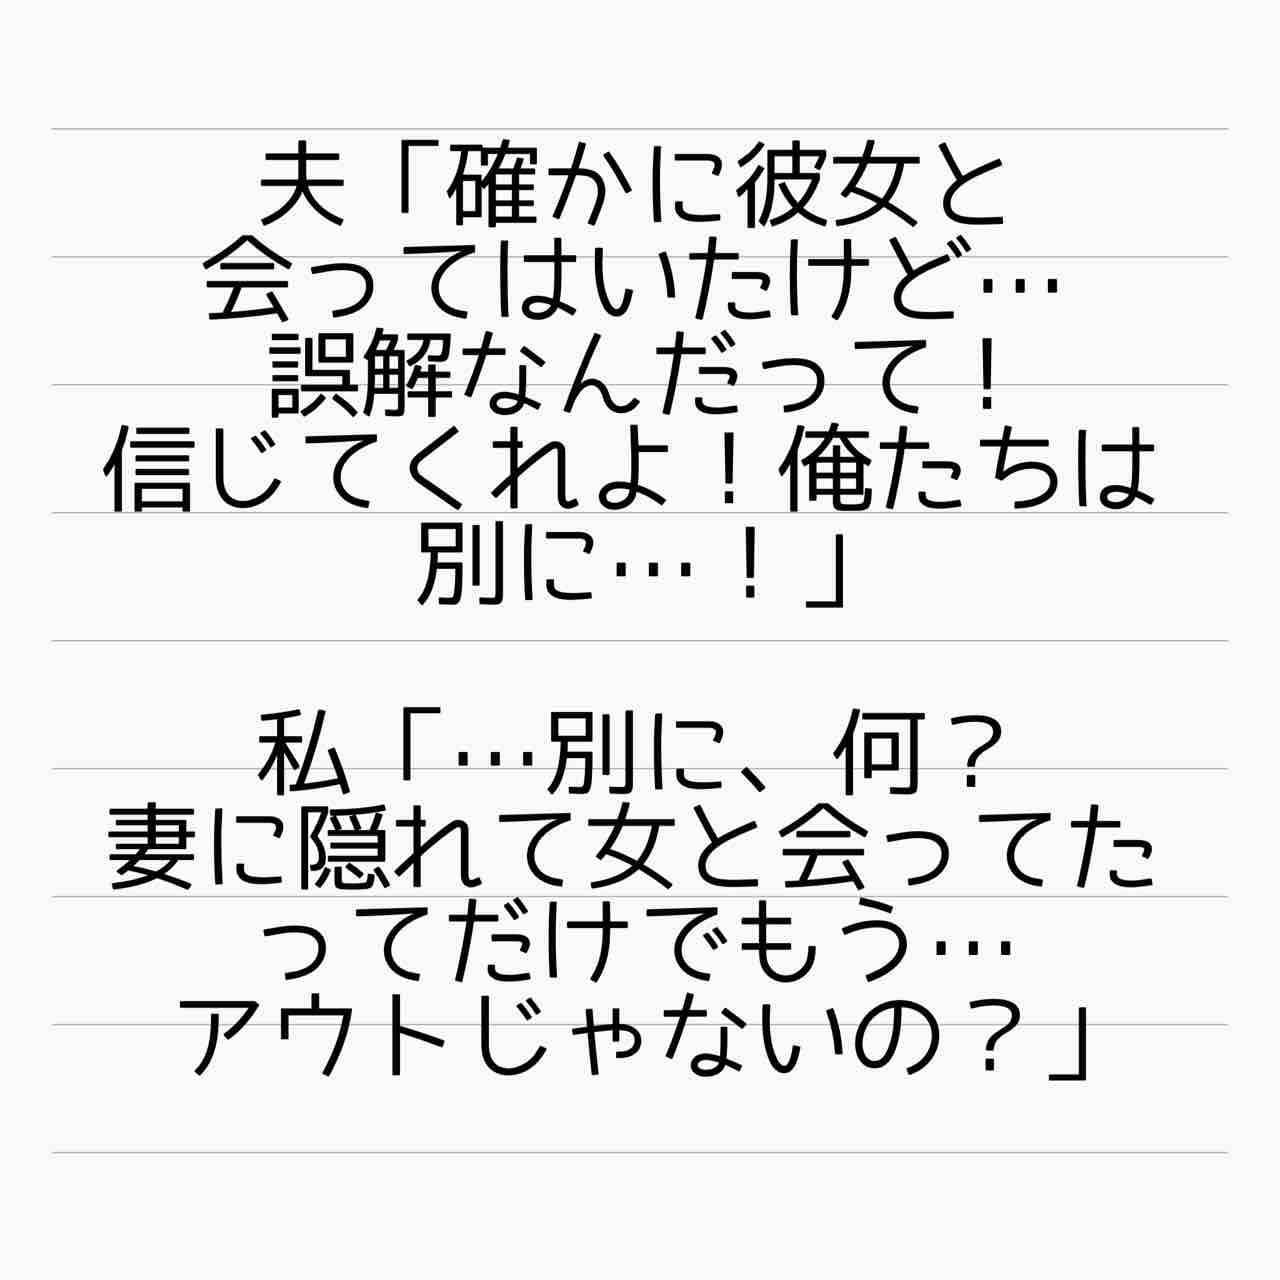 夫「確かに彼女と
会ってはいたけど…
誤解なんだって！
信じてくれよ！俺たちは
別に…！」
私「…別に、何？
妻に隠れて女と会ってた
ってだけでもう…
アウトじゃないの？」